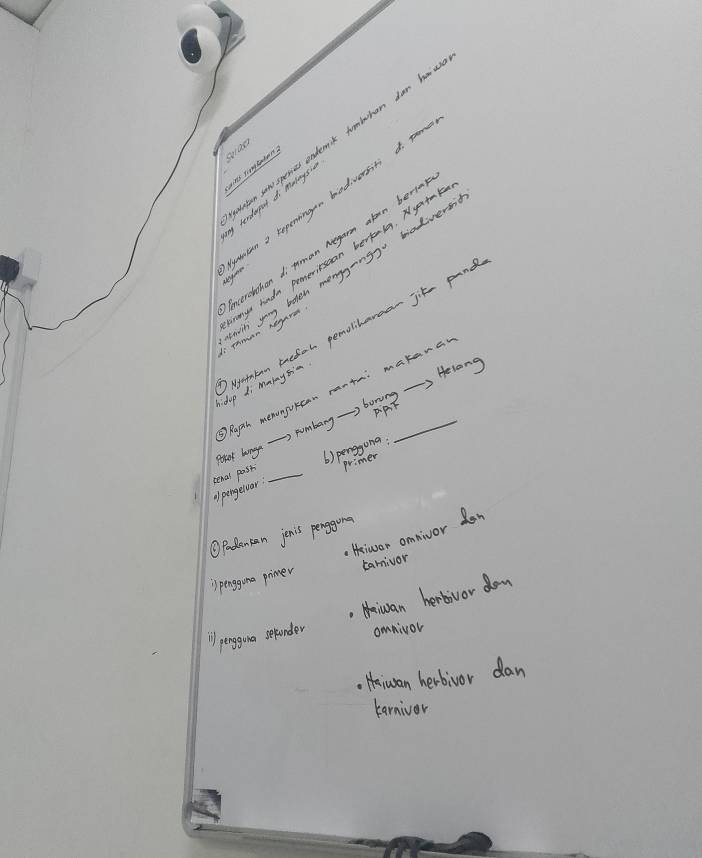 Selasa
Sains Tingkatan 2
① Nyatakan satu spesies endemik tumbuhan dan haiwan
yang terdapat di Malaysia.
② Nyatakan 2 kepentingan biodiversiti di Taman
Negara.
③ Pencerobohan di Taman Negara akan berlaku
sekiranya tiada pemeriksaan berkala. Nyatakan
2 aktiviti yang boleh mengganggu biodiversiti
di Taman Negara.
④ Nyatakan kaedah pemuliharaan jika panda
hidup di Malaysia.
⑤ Rajah menunjukkan rantai makanan
Pokok bunga → kumbang → burung pipit → Helang
kenal pasti
a) pengeluar : ____ b) pengguna primer : ____
⑥ Padankan jenis pengguna
i) pengguna primer • Haiwan omnivor dan
karnivor
ii) pengguna sekunder • Haiwan herbivor dan
omnivor
• Haiwan herbivor dan
karnivor